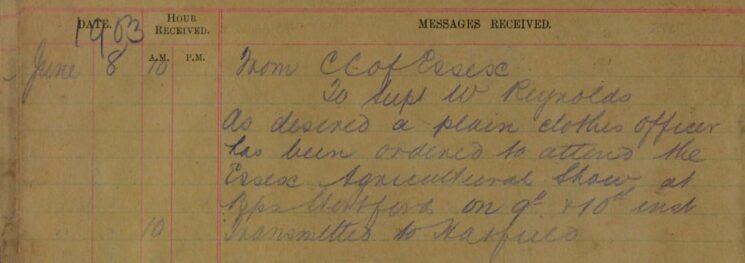 DATE. HOUR RECEIVED. MESSAGES RECEIVED.
1903 A.M. P.M.
June 8 10 From CC of Essex
To Supt W Reynolds
As desired a plain clothes officer
has been ordered to attend the
Essex Agricultural Show at
Bps Stortford on 9th & 10th inst
10 Transmitted to Hatfield